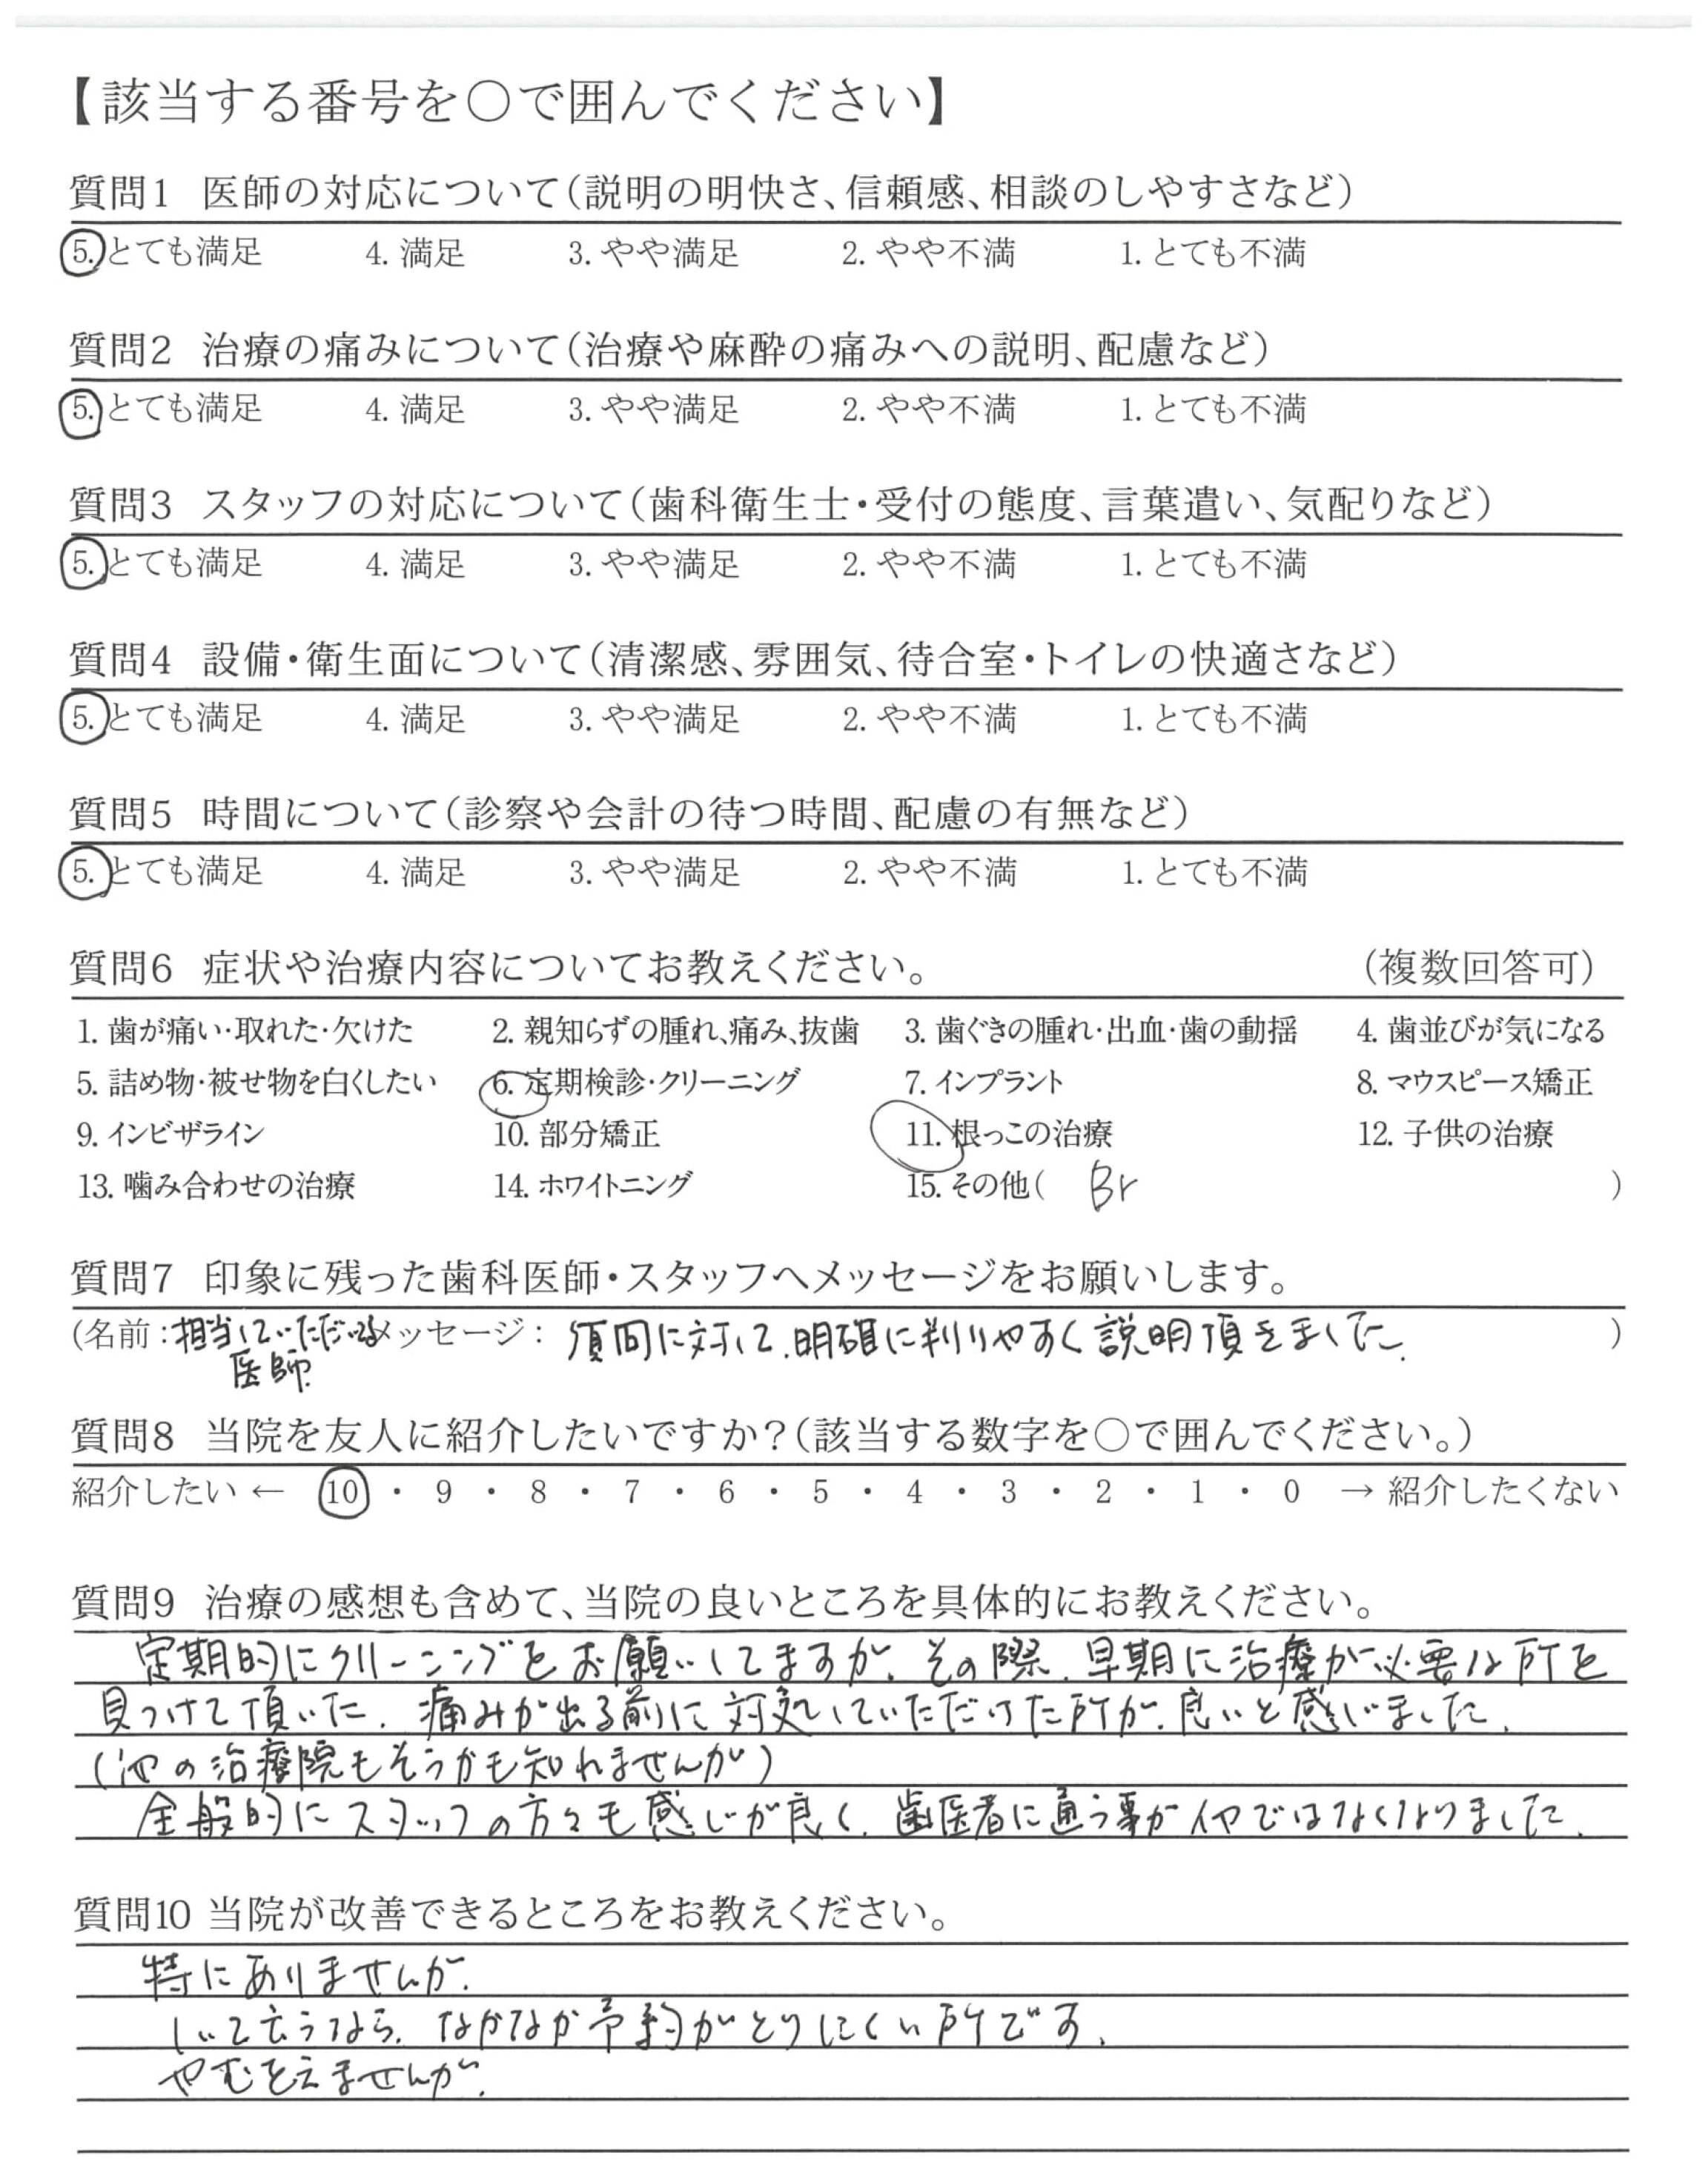 【該当する番号を○で囲んでください】
質問1 医師の対応について(説明の明快さ、信頼感、相談のしやすさなど)
5. とても満足 4. 満足 3. やや満足 2. やや不満 1. とても不満
質問2 治療の痛みについて(治療や麻酔の痛みへの説明、配慮など)
5. とても満足 4. 満足 3. やや満足 2. やや不満 1. とても不満
質問3 スタッフの対応について(歯科衛生士・受付の態度、言葉遣い、気配りなど)
5. とても満足 4. 満足 3. やや満足 2. やや不満 1. とても不満
質問4 設備・衛生面について(清潔感、雰囲気、待合室・トイレの快適さなど)
5. とても満足 4. 満足 3. やや満足 2. やや不満 1. とても不満
質問5 時間について(診察や会計の待つ時間、配慮の有無など)
5. とても満足 4. 満足 3. やや満足 2. やや不満 1. とても不満
質問6 症状や治療内容についてお教えください。 (複数回答可)
1. 歯が痛い・取れた・欠けた 2. 親知らずの腫れ、痛み、抜歯 3. 歯ぐきの腫れ・出血・歯の動揺 4. 歯並びが気になる
5. 詰め物・被せ物を白くしたい 6. 定期検診・クリーニング 7. インプラント 8. マウスピース矯正
9. インビザライン 10. 部分矯正 11. 根っこの治療 12. 子供の治療
13. 噛み合わせの治療 14. ホワイトニング 15. その他( Br )
質問7 印象に残った歯科医師・スタッフへメッセージをお願いします。
(名前:担当していただいてるメッセージ: 質問に対して、明確に判りやすく説明頂きました。 )
医師
質問8 当院を友人に紹介したいですか?(該当する数字を○で囲んでください。)
紹介したい ← 10 ・ 9 ・ 8 ・ 7 ・ 6 ・ 5 ・ 4 ・ 3 ・ 2 ・ 1 ・ 0 → 紹介したくない
質問9 治療の感想も含めて、当院の良いところを具体的にお教えください。
定期的にクリーニングをお願いしてますが、その際、早期に治療が必要な所を
見つけて頂いた。痛みが出る前に対処していただけた所が、良いと感じました。
(他の治療院もそうかも知れませんが)
全般的にスタッフの方々も感じが良く、歯医者に通う事がイヤではなくなりました。
質問10 当院が改善できるところをお教えください。
特にありませんが、
しいて言うなら、なかなか予約がとりにくい所です。
やむをえませんが。